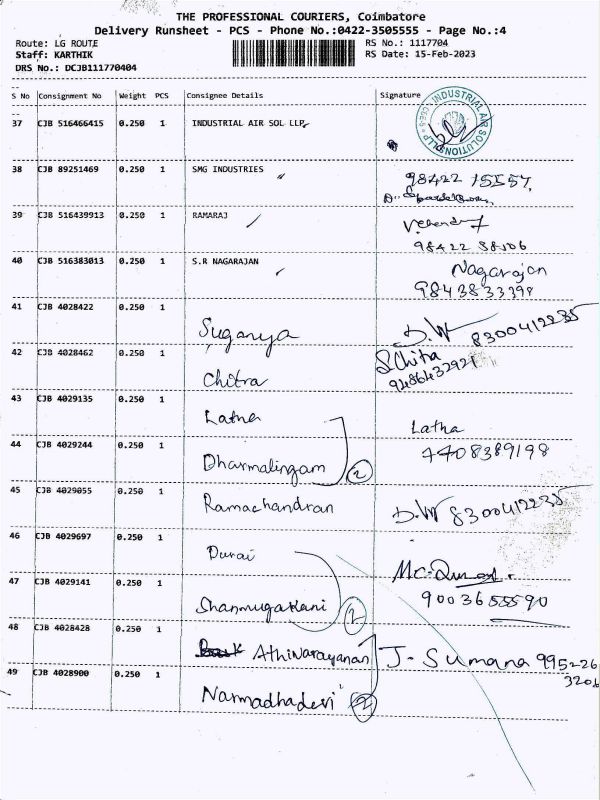 THE PROFESSIONAL COURIERS, Coimbatore
Delivery Runsheet - PCS - Phone No.:0422-3505555 - Page No.:4
Route: LG ROUTE RS No.: 1117704
Staff: KARTHIK RS Date: 15-Feb-2023
DRS No.: DCJB111770404
S No Consignment No Weight PCS Consignee Details Signature
37 CJB 516466415 0.250 1 INDUSTRIAL AIR SOL LLP
INDUSTRIAL AIR SOLUTIONS LLP
38 CJB 89251469 0.250 1 SMG INDUSTRIES 98422 15557
39 CJB 516439913 0.250 1 RAMARAJ
98422 38506
40 CJB 516383013 0.250 1 S.R NAGARAJAN Nagarajan
9843833398
41 CJB 4028422 0.250 1 Suganya D.W 8300412235
42 CJB 4028462 0.250 1 Chitra S.Chitra
9486432921
43 CJB 4029135 0.250 1 Latha Latha
44 CJB 4029244 0.250 1 Dharmalingam 2 7708389198
45 CJB 4029055 0.250 1 Ramachandran D.W 8300412235
46 CJB 4029697 0.250 1 Durai
47 CJB 4029141 0.250 1 Shanmugakani 2 9003655590
48 CJB 4028428 0.250 1 Athinarayanan J. Sumana 995226
3206
49 CJB 4028900 0.250 1 Narmadhadevi 2